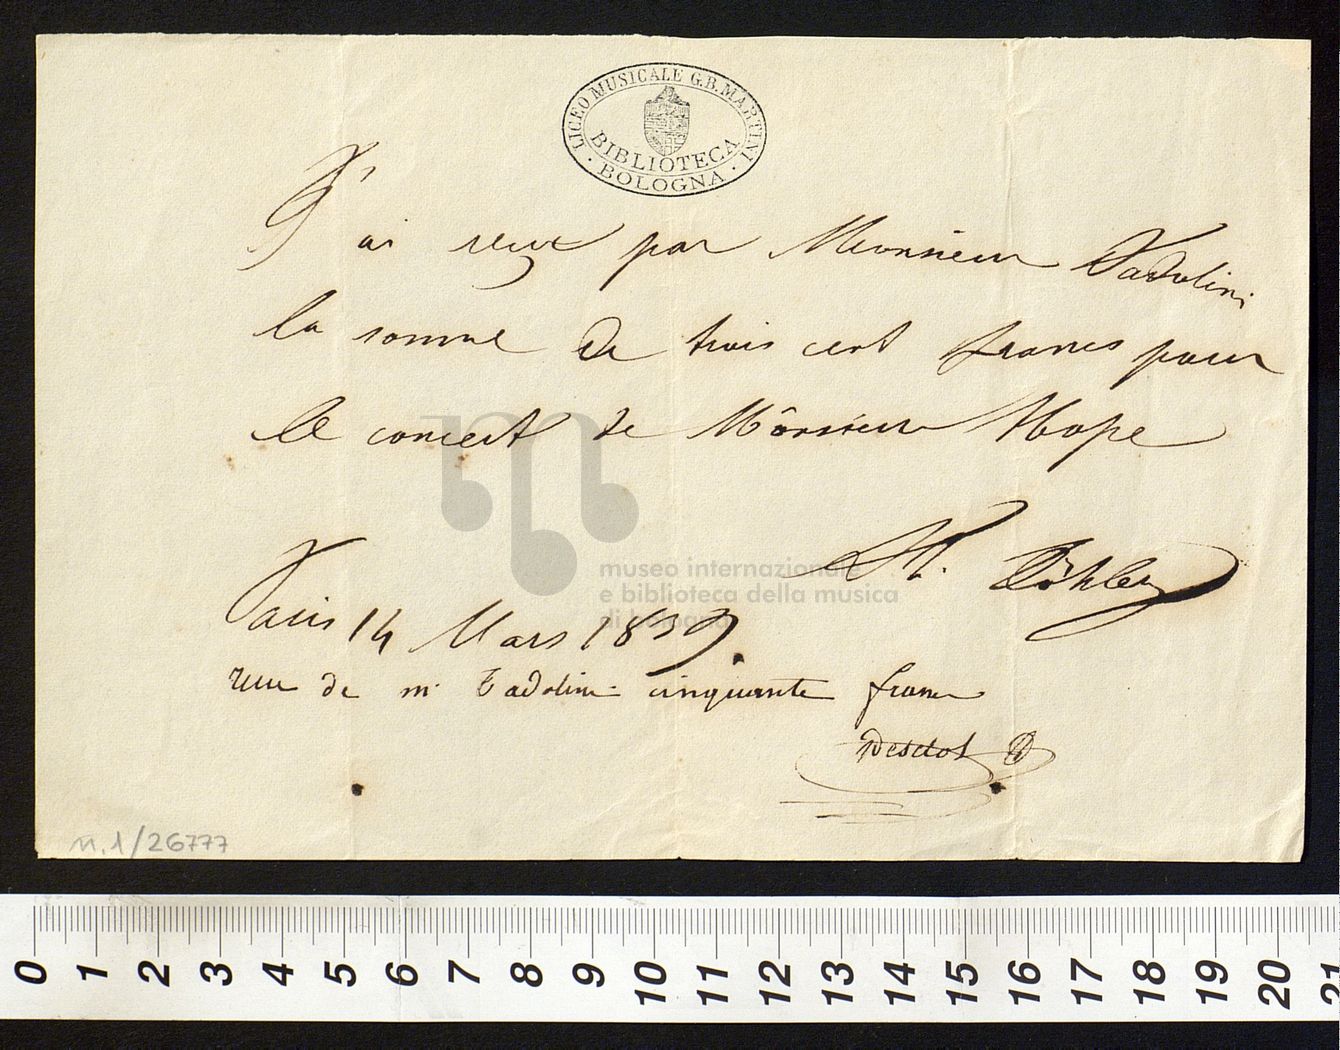 LICEO MUSICALE G.B. MARTINI
BIBLIOTECA
BOLOGNA
J'ai reçu par Monsieur Tadolini
la somme de trois cent francs pour
le concert de Monsieur Hope
Th. Döhler
museo internazionale
e biblioteca della musica
di bologna
Paris 14 Mars 1839.
recu de m Tadolini cinquante franc
n.1/26777
0 1 2 3 4 5 6 7 8 9 10 11 12 13 14 15 16 17 18 19 20 21